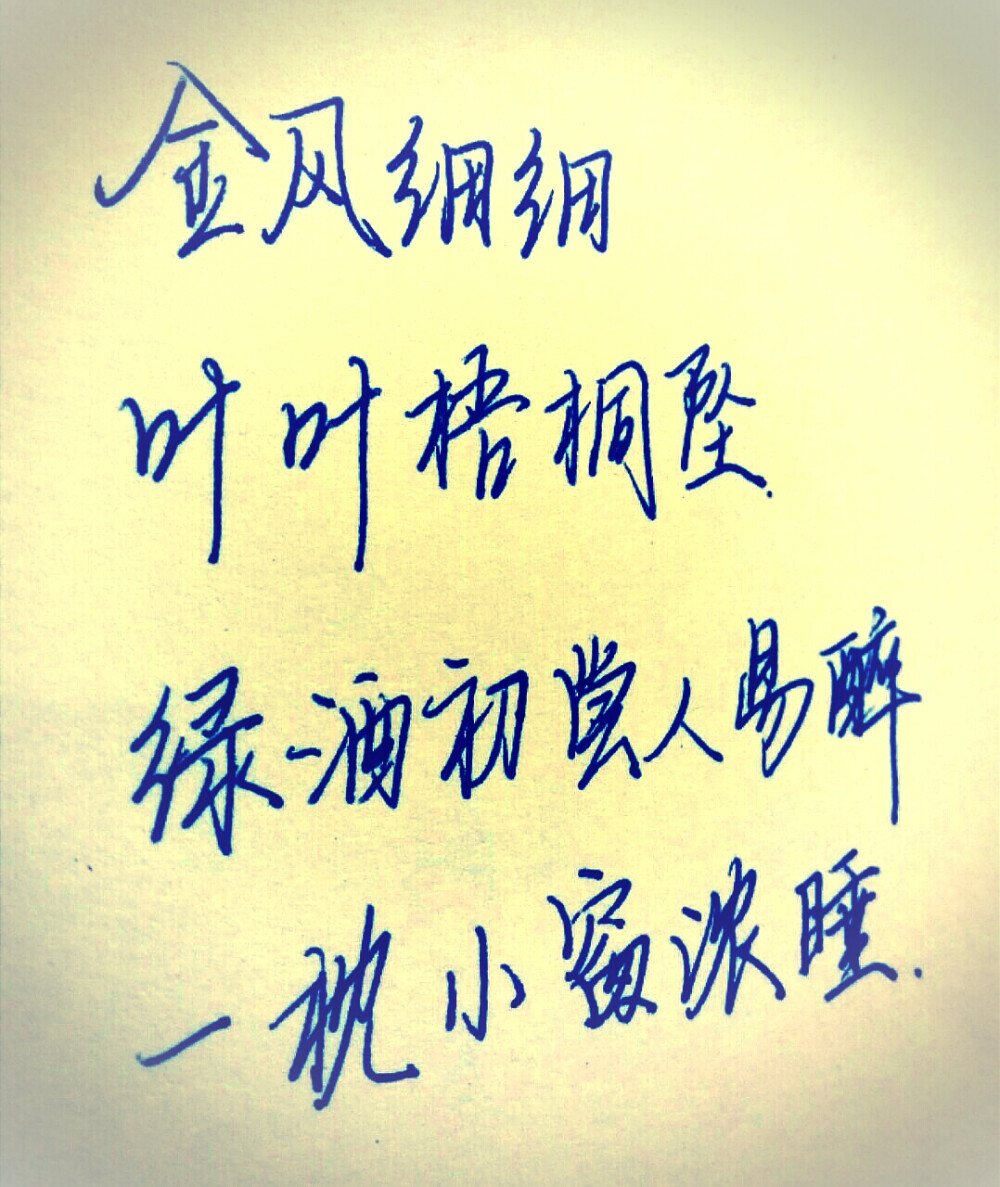 金风细细
叶叶梧桐坠.
绿酒初尝人易醉
一枕小窗浓睡.